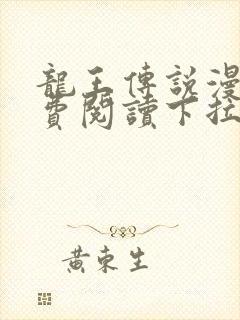 龍王傳說漫
費閱讀下拉
黃東生